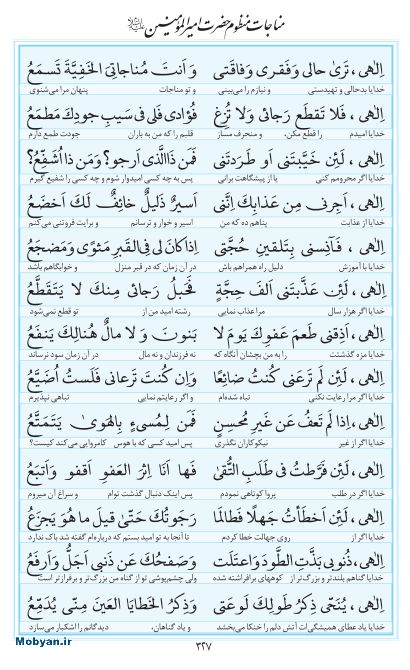 مناجات منظوم حضرت امیرالمؤمنین علیه‌السلام
اِلٰهی، تَریٰ حالی وَفَقری وَفاقَتی وَ اَنتَ مُناجاتِی الخَفِیَّةَ تَسمَعُ
خدایا بدحالی و تهیدستی و نیازم را می‌بینی و تو مناجات پنهان مرا می‌شنوی
اِلٰهی، فَلا تَقطَع رَجائی وَلا تُزِغ فُؤادی فَلی فی سَیبِ جودِكَ مَطمَعُ
خدایا امیدم را قطع مکن، و منحرف مساز قلبم را که من به باران جودت طمع دارم
اِلٰهی، لَئِن خَیَّبتَنی اَو طَرَدتَنی فَمَن ذَاالَّذی اَرجو؟ وَمَن ذا اُشَفِّعُ؟
خدایا اگر محرومم کنی یا از پیشگاهت برانی پس به چه کسی امیدوار شوم و چه کسی را شفیع گیرم
اِلٰهی، اَجِرنی مِن عَذابِكَ اِنَّنی اَسیرٌ ذَلیلٌ خائِفٌ لَكَ اَخضَعُ
خدایا از عذابت پناهم ده که من اسیر و خوار و ترسانم و برایت فروتنی می‌کنم
اِلٰهی، فَآنِسنی بِتَلقینِ حُجَّتی اِذا کانَ لی فِی القَبرِ مَثویً وَمَضجَعُ
خدایا با آموزش دلیل راه همراهم باش در آن زمان که در قبر منزل و خوابگاهم باشد
اِلٰهی، لَئِن عَذَّبتَنی اَلفَ حِجَّةٍ فَحَبلُ رَجائی مِنكَ لا یَتَقَطَّعُ
خدایا اگر هزار سال مرا عذاب نمایی رشته امید من از تو قطع نمی‌شود
اِلٰهی، اَذِقنی طَعمَ عَفوِكَ یَومَ لا بَنونَ وَ لا مالٌ هُنالِكَ یَنفَعُ
خدایا مزه گذشتت را به من بچشان آنگاه که نه فرزندان و نه مال در آن زمان سود نرساند
اِلٰهی، لَئِن لَم تَرعَنی کُنتُ ضائِعًا وَاِن کُنتَ تَرعانی فَلَستُ اُضَیَّعُ
خدایا اگر مرا رعایت نکنی تباه شده‌ام و اگر رعایتم نمایی تباهی نپذیرم
اِلٰهی، اِذا لَم تَعفُ عَن غَیرِ مُحسِنٍ فَمَن لِمُسیءٍ بِالهَویٰ یَتَمَتَّعُ
خدایا اگر از غیر نیکوکاران نگذری پس امید کسی که با هوس کامروایی می‌کند کیست؟
اِلٰهی، لَئِن فَرَّطتُ فی طَلَبِ التُّقیٰ فَها اَنَا اِثرَ العَفوِ اَقفو وَاَتبَعُ
خدایا اگر در طلب پروا کوتاهی نمودم پس اینک دنبال گذشت توام و سراغ آن میروم
اِلٰهی، لَئِن اَخطَأتُ جَهلًا فَطالَما رَجَوتُكَ حَتّیٰ قیلَ ما هُوَ یَجزَعُ
خدایا اگر از روی جهالت خطا کردم تا آنجا به تو امید بستم که درباره‌ام گفته شد باک ندارد
اِلٰهی، ذُنوبی بَذَّتِ الطَّودَ وَاعتَلَت وَصَفحُكَ عَن ذَنبی اَجَلُّ وَاَرفَعُ
خدایا گناهم بلندتر و بزرگ‌تر از کوههای برافراشته شده ولی چشم‌پوشی تو از گناه من بزرگ‌تر و برفرازتر است
اِلٰهی، یُنَحّی ذِکرُ طَولِكَ لَوعَتی وَذِکرُ الخَطایَا العَینَ مِنّی یُدَمِّعُ
خدایا یاد عطای همیشگی‌ات آتش دلم را خنکا می‌بخشد و یاد گناهان، دیدگانم را اشکبار می‌سازد
۳۲۷
Mobyan.ir